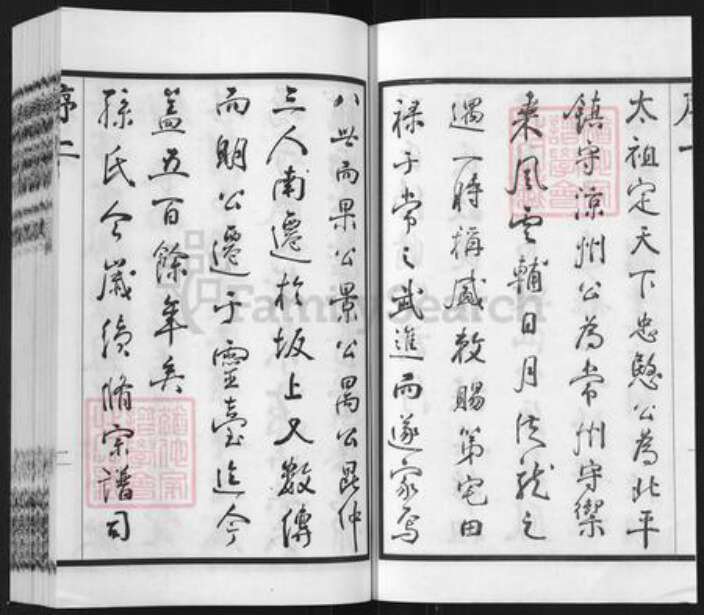 序一
太祖定天下忠愍公為北平
鎮守涼州公為常州守禦
乘風雲輔日月從龍之
遇一時稱盛教賜第宅田
祿于常之武進而遂家焉
八世而果公景公禺公昆仲
三人南遷於坂上又數傳
而明公遷于靈臺迄今
蓋五百餘年矣
孫氏今歲續脩宗譜司
序二
二
FamilySearch